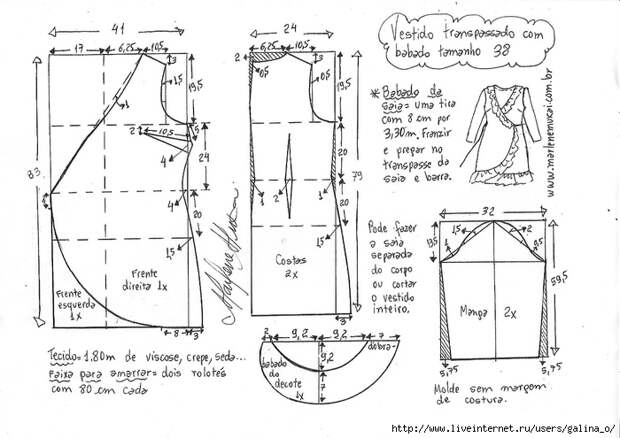 Vestido transpassado com
babado tamanho 38
* Babado da
saia: uma tira
com 8 cm por
3,30m. Franzir
e pregar no
transpasse da
saia e barra.
www.marlenemukai.com.br
41
17
6,25
10,5
3
1,5
19,5
1
2
10,5
1,5
4
24
4
20
1,5
83
Frente
direita 1x
Frente
esquerda
1x
8
3
Marlene Mukai
24
2
6,25
10,5
3
0,5
0,5
19,5
20
79
1
2
1
20
1,5
Costas
2x
3
Pode fazer
a saia
separada
do corpo
ou cortar
o vestido
inteiro.
32
1,5
2
13,5
1
0,5
59,5
Manga
2x
5,75
5,75
Molde sem margem
de costura.
Tecido= 1.80m de viscose, crepe, seda...
Faixa para amarrar= dois rolotês
com 80 cm cada
2
9,2
9,2
7
9,2
7
dobra
babado
do
decote
1x
http://www.liveinternet.ru/users/galina_o/